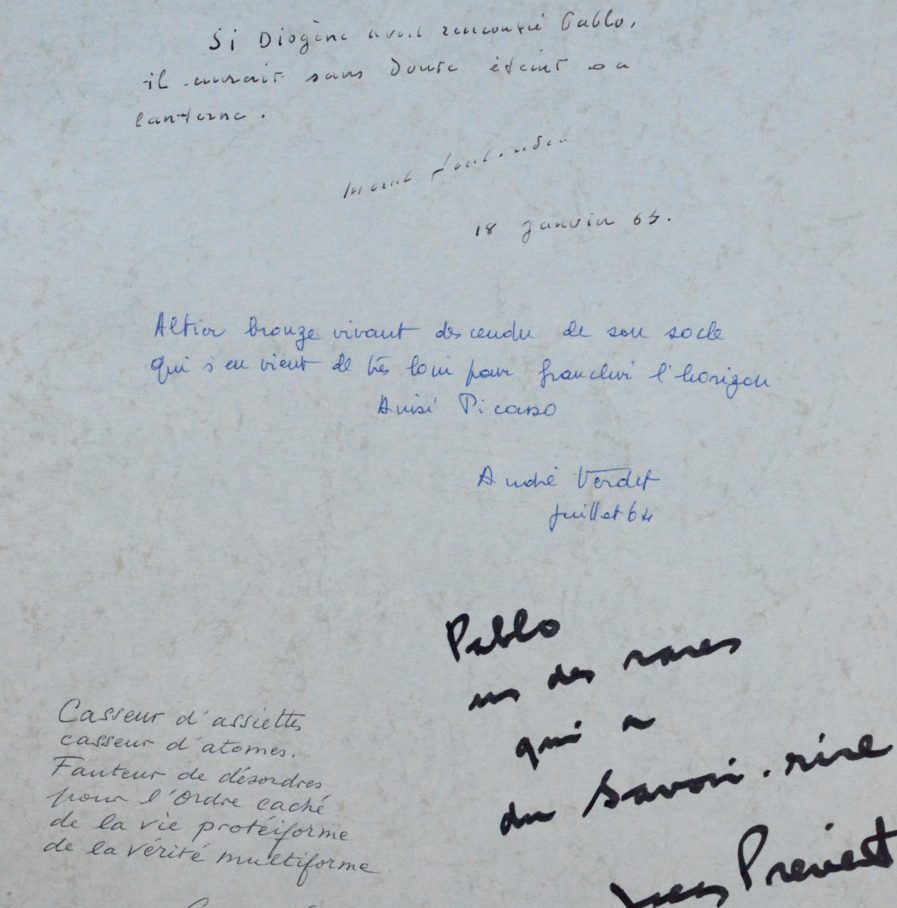 Si Diogène avait rencontré Pablo,
il aurait sans doute éteint sa
lanterne.
18 janvier 64.
Altier bronze vivant descendu de son socle
qui s'en vient de très loin pour franchir l'horizon
Ainsi Picasso
André Verdet
juillet 64
Pablo
un des rares
qui a
du savoir.rire
Casseur d'assiettes
casseur d'atomes.
Fauteur de désordres
pour l'Ordre caché
de la vie protéiforme
de la vérité multiforme
Prévert